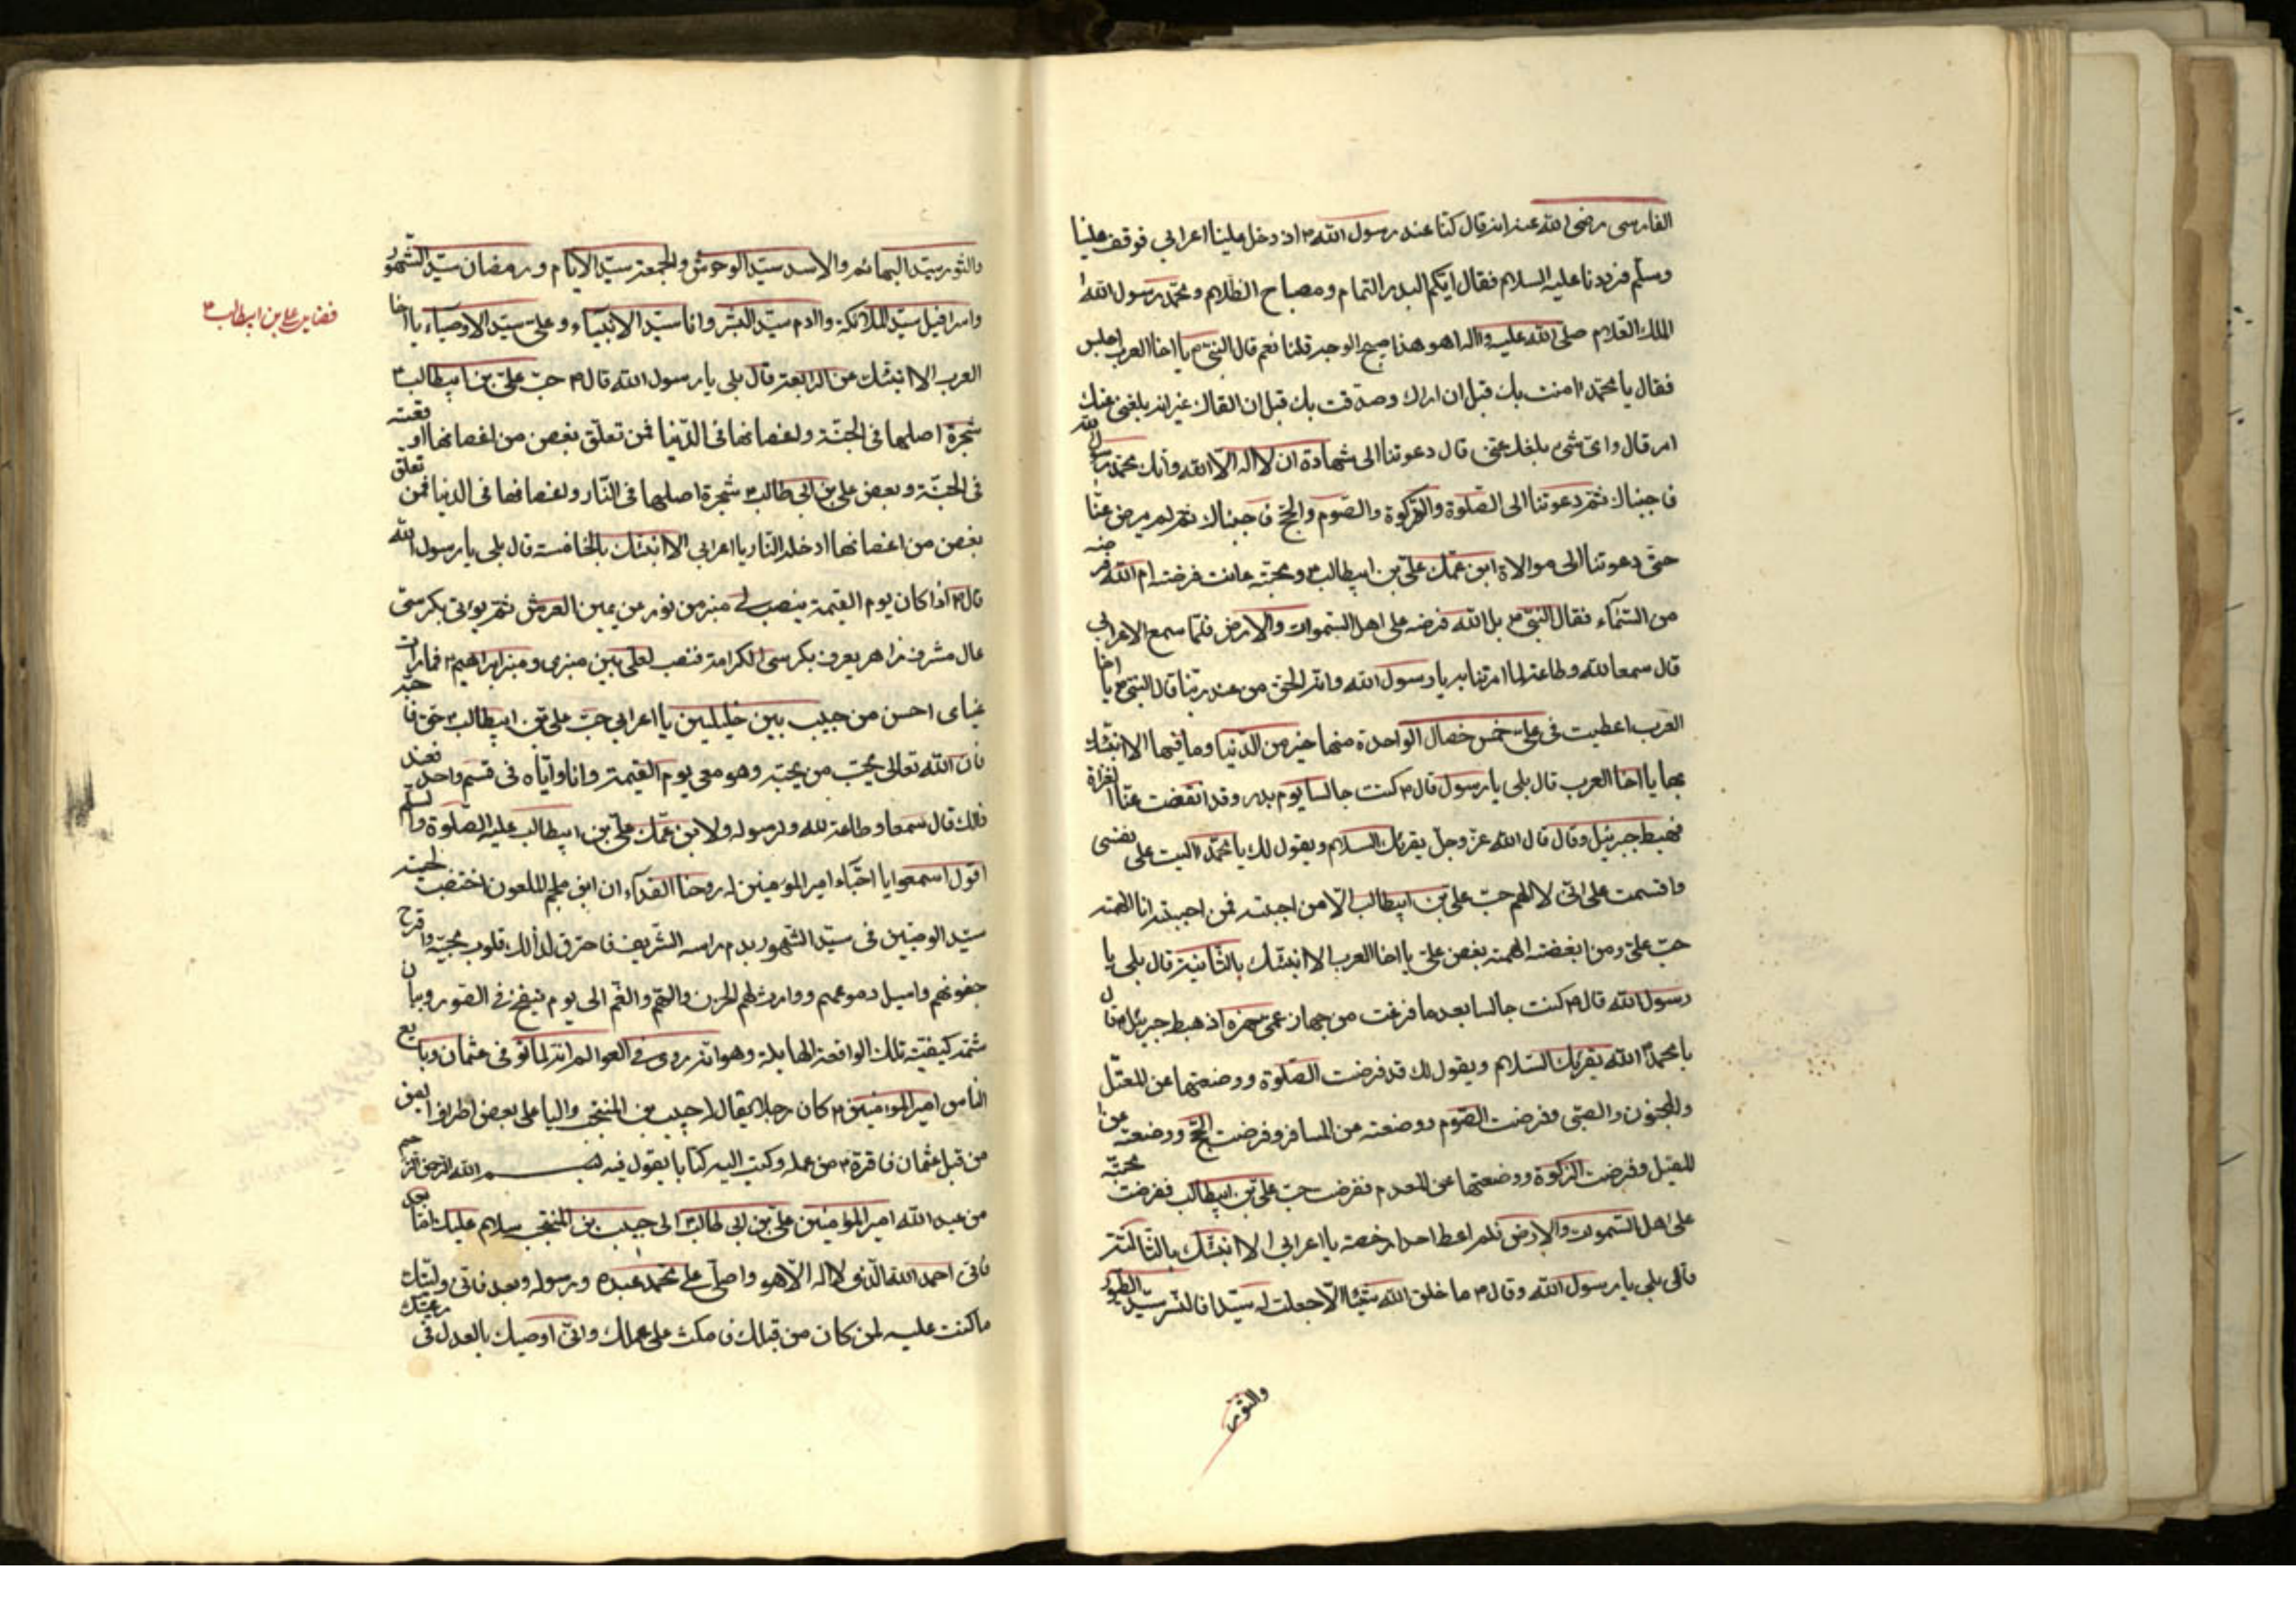 الفارسی رضی الله عنه انه قال کنا عند رسول الله ۳ اذ دخل علینا اعرابی فوقف علینا
وسلم فرددنا علیه السلام فقال ایکم البدر التمام ومصباح الظلام ومحمد رسول الله
الملک العلام صلی الله علیه واله اهو هذا صبیح الوجه قلنا نعم قال النبی ۳ یا اخا العرب اجلس
فقال یا محمد امنت بک قبل ان اراک وصدقت بک قبل ان القاک غیر انه بلغنی عنک
امر قال وای شیء بلغک عنی قال دعوتنا الی شهادة ان لا اله الا الله وانک محمد رسول الله
فاجبناک ثم دعوتنا الی الصلوة والزکوة والصوم والحج فاجبناک ثم لم یرض عنا
حتی دعوتنا الی موالاة ابن عمک علی بن ابیطالب ۳ ومحبته ءانت فرضته ام الله فرضه
من السماء فقال النبی ۳ بل الله فرضه علی اهل السموات والارض فلما سمع الاعرابی
قال سمعا لله وطاعة لما امرتنا به یا رسول الله وانه الحق من عند ربنا قال النبی ۳ یا اخا
العرب اعطیت فی علی خمس خصال الواحدة منها خیر من الدنیا وما فیها الا انبئک
بها یا اخا العرب قال بلی یا رسول قال ۳ کنت جالسا یوم بدر وقد انقضت عنا الغزاة
فهبط جبرئیل وقال قال الله عز وجل یقرئک السلام ویقول لک یا محمد الیت علی نفسی
واقسمت علی انی لا الهم حب علی بن ابیطالب الا من احببته فمن احببته انا الهمته
حب علی ومن ابغضته الهمته بغض علی یا اخا العرب الا انبئک بالثانیة قال بلی یا
رسول الله قال ۳ کنت جالسا بعد ما فرغت من جهاز عمی حمزه اذ هبط جبرئیل ۳ قال
یا محمد الله یقرئک السلام ویقول لک قد فرضت الصلوة ووضعتها عن المعتل
والمجنون والصبی وفرضت الصوم ووضعته من المسافر وفرضت الحج ووضعته عن
المقل وفرضت الزکوة ووضعتها عن المعدم ففرضت حب علی بن ابیطالب ففرضت محبته
علی اهل السموات والارض فلم اعط احدا رخصة یا اعرابی الا انبئک بالثالثة
قال بلی یا رسول الله وقال ۳ ما خلق الله شیئا الا جعلت له سیدا فالنسر سید الطیور
والثور
والثور سید البهائم والاسد سید الوحوش والجمعة سید الایام ورمضان سید الشهور
واسرافیل سید الملائکة وادم سید البشر وانا سید الانبیاء وعلی سید الاوصیاء یا اخا
العرب الا انبئک عن الرابعة قال بلی یا رسول الله قال ۳ حب علی بن ابیطالب ۳
شجرة اصلها فی الجنة واغصانها فی الدنیا فمن تعلق بغصن من اغصانها اوقعته
فی الجنة وبغض علی بن ابی طالب ۳ شجرة اصلها فی النار واغصانها فی الدنیا فمن تعلق
بغصن من اغصانها ادخله النار یا اعرابی الا انبئک بالخامسة قال بلی یا رسول الله
قال ۳ اذا کان یوم القیمة ینصب لی منبر من نور عن یمین العرش ثم یوتی بکرسی
عال مشرف زاهر یعرف بکرسی الکرامة فنصب لعلی بین منبری ومنبر ابراهیم ۳ فما رات
عینای احسن من حبیب بین خلیلین یا اعرابی حب علی بن ابیطالب ۳ حق فاحبه
فان الله تعالی یحب من یحبه وهو معی یوم القیمة وانا وایاه فی قسم واحد فعند
ذلک قال سمعا وطاعة لله ولرسوله ولابن عمک علی بن ابیطالب علیه الصلوة والسلام
اقول اسمعوا یا احباء امیر المومنین له روحنا الفداء ان ابن ملجم الملعون اختضب لحیته
سید الوصیین فی سید الشهور بدم راسه الشریف فاحترق لذلک قلوب محبیه واقرح
جفونهم واسیل دموعهم واورث لهم الحزن والهم والغم الی یوم ینفخ فی الصور وبیان
شمة کیفیة تلک الواقعة الهایلة وهو انه روی فی العوالم انه لما توفی عثمان وبایع
الناس امیر المومنین ۳ کان رجلا یقال له حبیب بن المنتجب والیا علی بعض اطراف الیمن
من قبل عثمان فاقره ۳ من عمله وکتب الیه کتابا یقول فیه بسم الله الرحمن الرحیم
من عبد الله امیر المومنین علی بن ابی طالب ۳ الی حبیب بن المنتجب سلام علیک اما بعد
فانی احمد الله الذی لا اله الا هو واصلی علی محمد عبده ورسوله وبعد فانی ولیتک
ما کنت علیه لمن کان من قبلک فامکث علی عملک وانی اوصیک بالعدل فی رعیتک
فضایل علی بن ابیطالب ۳